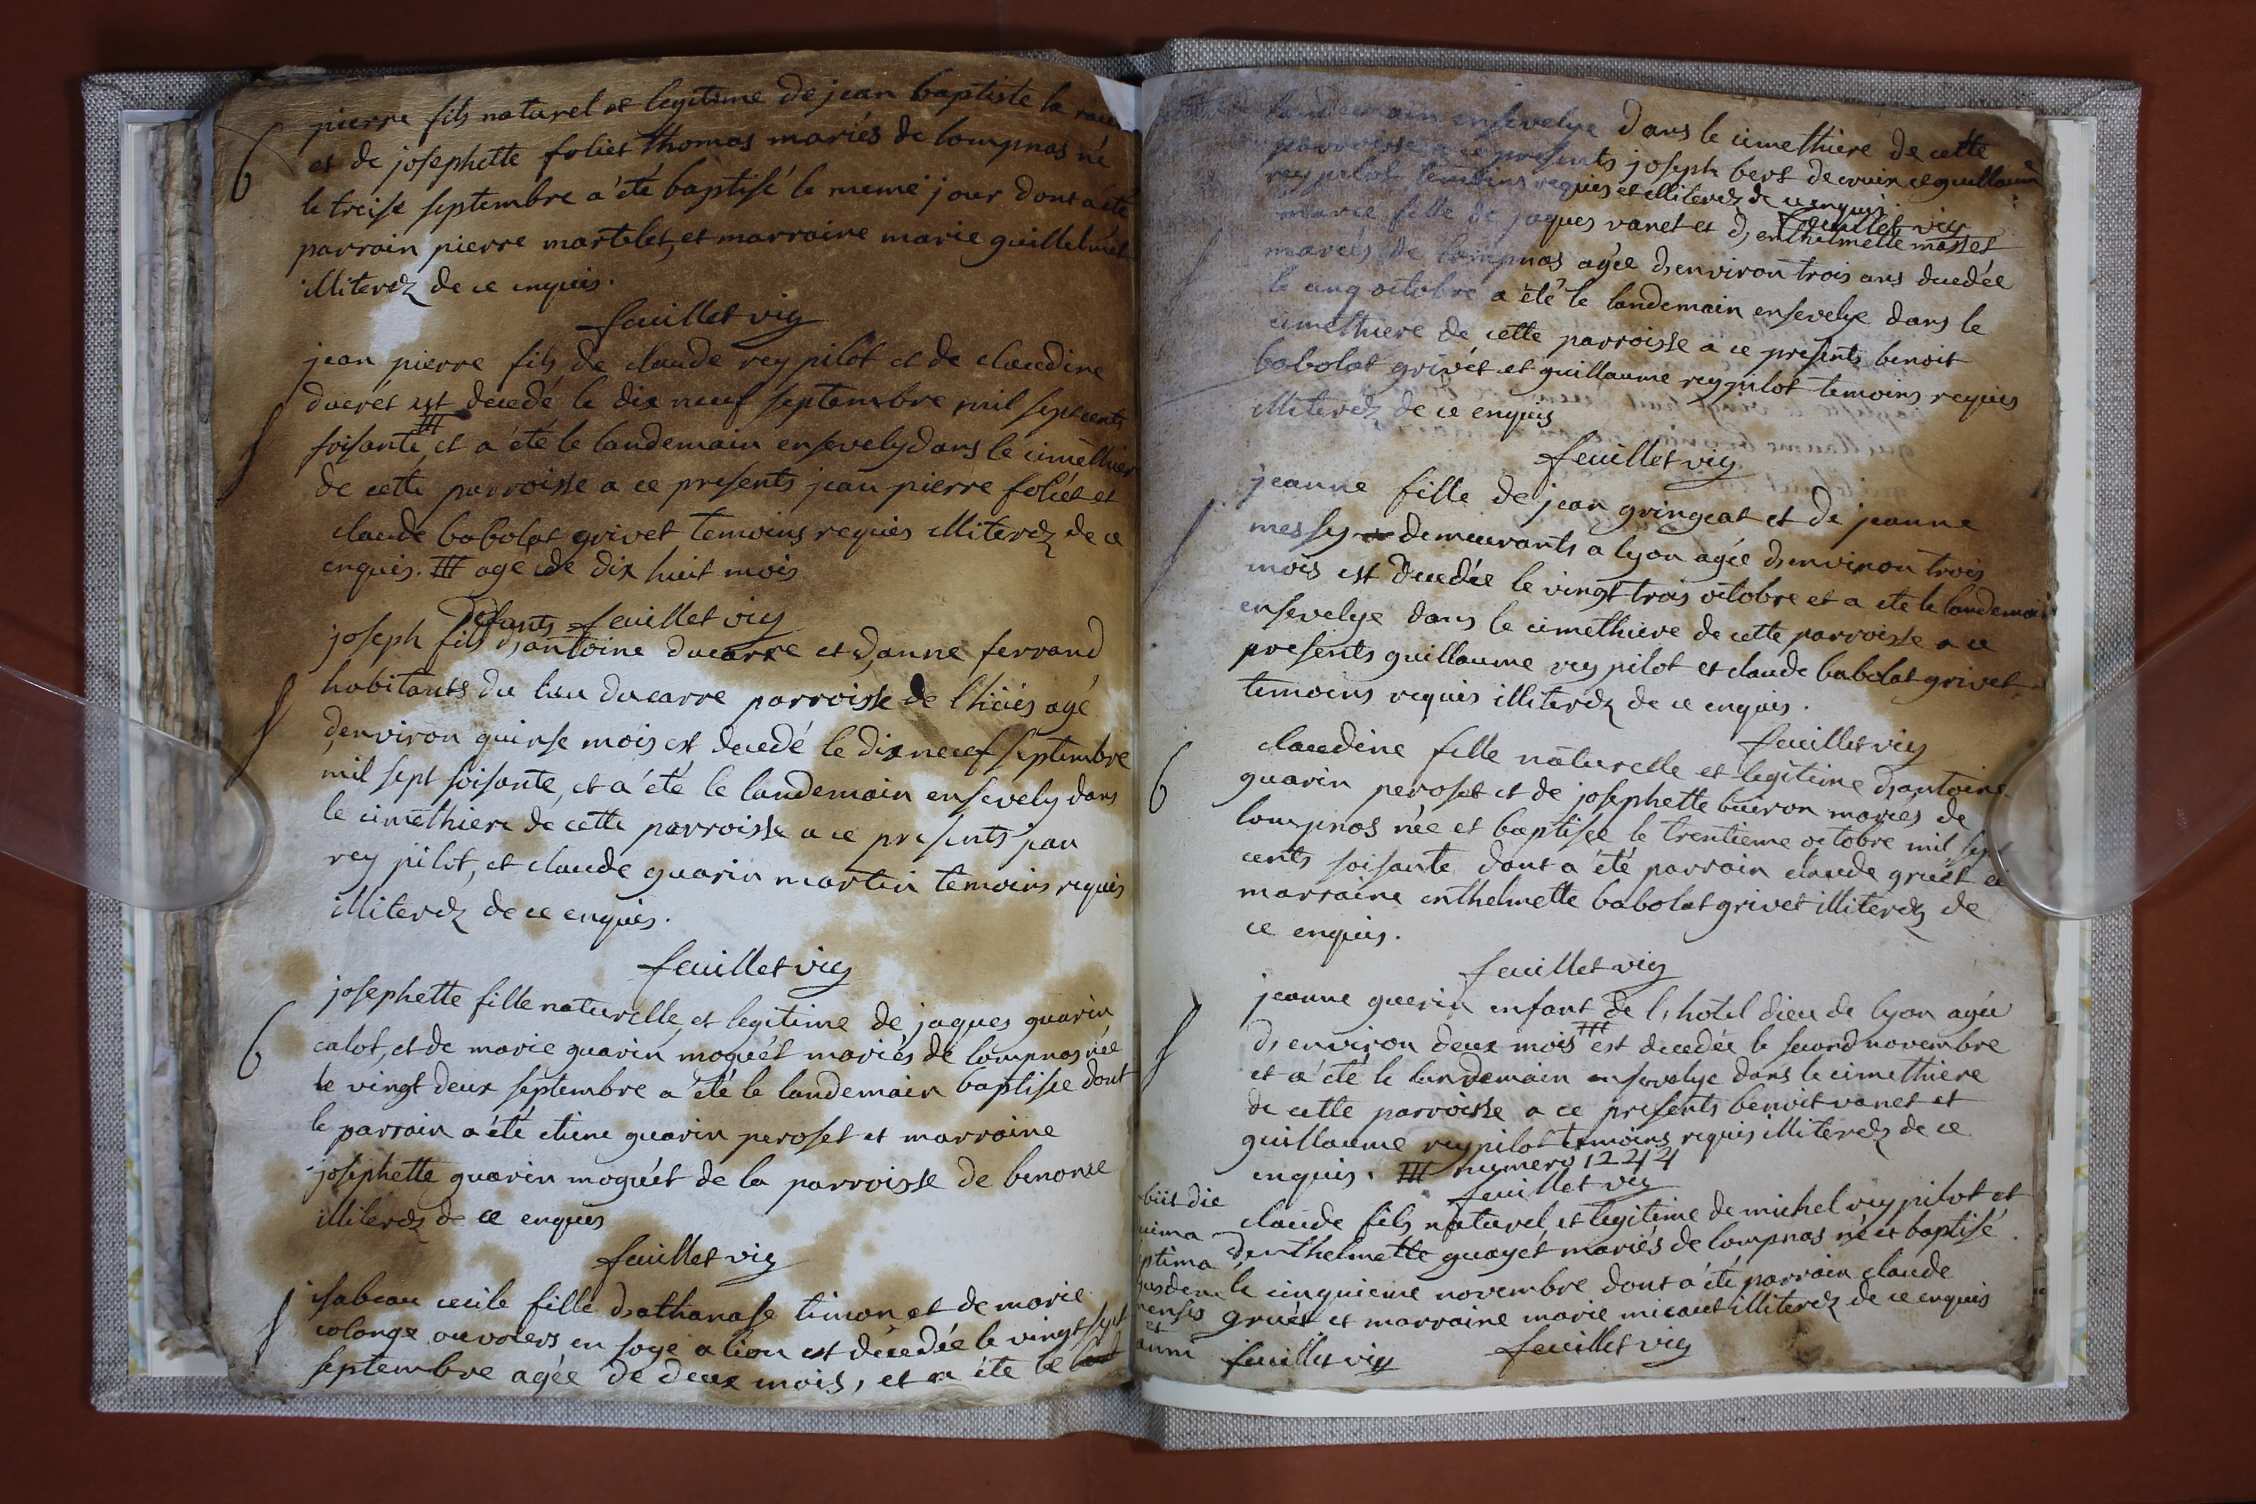 pierre fils naturel et legitime de jean baptiste la
6 et de josephette foliet thomas mariés de lompnas né
le treise septembre a été baptisé le meme jour dont a été
parrain pierre martelet, et marraine marie guillelmet
illiterez de ce enquis.
feuillet vic
jean pierre fils de claude rey pilot et de claudine
ducrét est decedé le dix neuf septembre mil sept cents
soisante et a été le landemain ensevely dans le cimethier
de cette parroisse a ce presents jean pierre foliét et
claude babolat grivet temoins requis illiterez de ce
enquis. agé de dix huit mois
feuillet vic
joseph fils d'antoine ducarre et d'anne ferrand
habitants du lieu ducarre parroisse de lhiués agé
d'environ quinse mois est decedé le dix neuf septembre
mil sept soisante, et a été le landemain ensevely dans
le cimethiere de cette parroisse a ce presents jean
rey pilot, et claude guarin martin temoins requis
illiterez de ce enquis.
feuillet vic
josephette fille naturelle, et legitime de jaques guarin
6 calot, et de marie guarin moguét mariés de lompnas née
le vingt deux septembre a été le landemain baptisée dont
le parrain a été etiene guarin peroset et marraine
josephette guarin moguét de la parroisse de benonce
illiterez de ce enquis
feuillet vic
isabeau cecile fille d'athanase timon et de marie
colonge ouvriers en soye a lion est decedée le vingt sept
septembre agée de deux mois, et a été le
landemain ensevelye dans le cimethiere de cette
parroisse a ce presents joseph bert decruix et guillaume
rey pilot temoins requis et illiterez de ce enquis
feuillet vic
marie fille de jaques vanet et d'enthelmette masset
mariés de lompnas agée d'environ trois ans decedée
le cinq octobre a été le landemain ensevelye dans le
cimethiere de cette parroisse a ce presents benoit
babolat grivét et guillaume rey pilot temoins requis
illiterez de ce enquis
feuillet vic
jeanne fille de jean gringeat et de jeanne
messy demeurants a lyon agée d'environ trois
mois est decedée le vingt trois octobre et a été le landemain
ensevelye dans le cimethiere de cette parroisse a ce
presents guillaume rey pilot et claude babolat grivet
temoins requis illiterez de ce enquis.
feuillet vic
claudine fille naturelle et legitime d'antoine
6 guarin peroset et de josephette buiron mariés de
lompnas née et baptisée le trentieme octobre mil sept
cents soisante dont a été parrain claude gruét et
marraine enthelmette babolat grivet illiterez de
ce enquis.
feuillet vic
jeanne guerin enfant de l'hotel dieu de lyon agée
d'environ deux mois est decedée le second novembre
et a été le landemain ensevelye dans le cimethiere
de cette parroisse a ce presents benoit vanet et
guillaume rey pilot temoins requis illiterez de ce
enquis. numero 1244
feuillet vic
claude fils naturel, et legitime de michel rey pilot et
d'enthelmette guayét mariés de lompnas né et baptisé
le cinquieme novembre dont a été parrain claude
gruét et marraine marie micaut illiterez de ce enquis
feuillet vic
feuillet vic
biit die
ptima
mensis
et